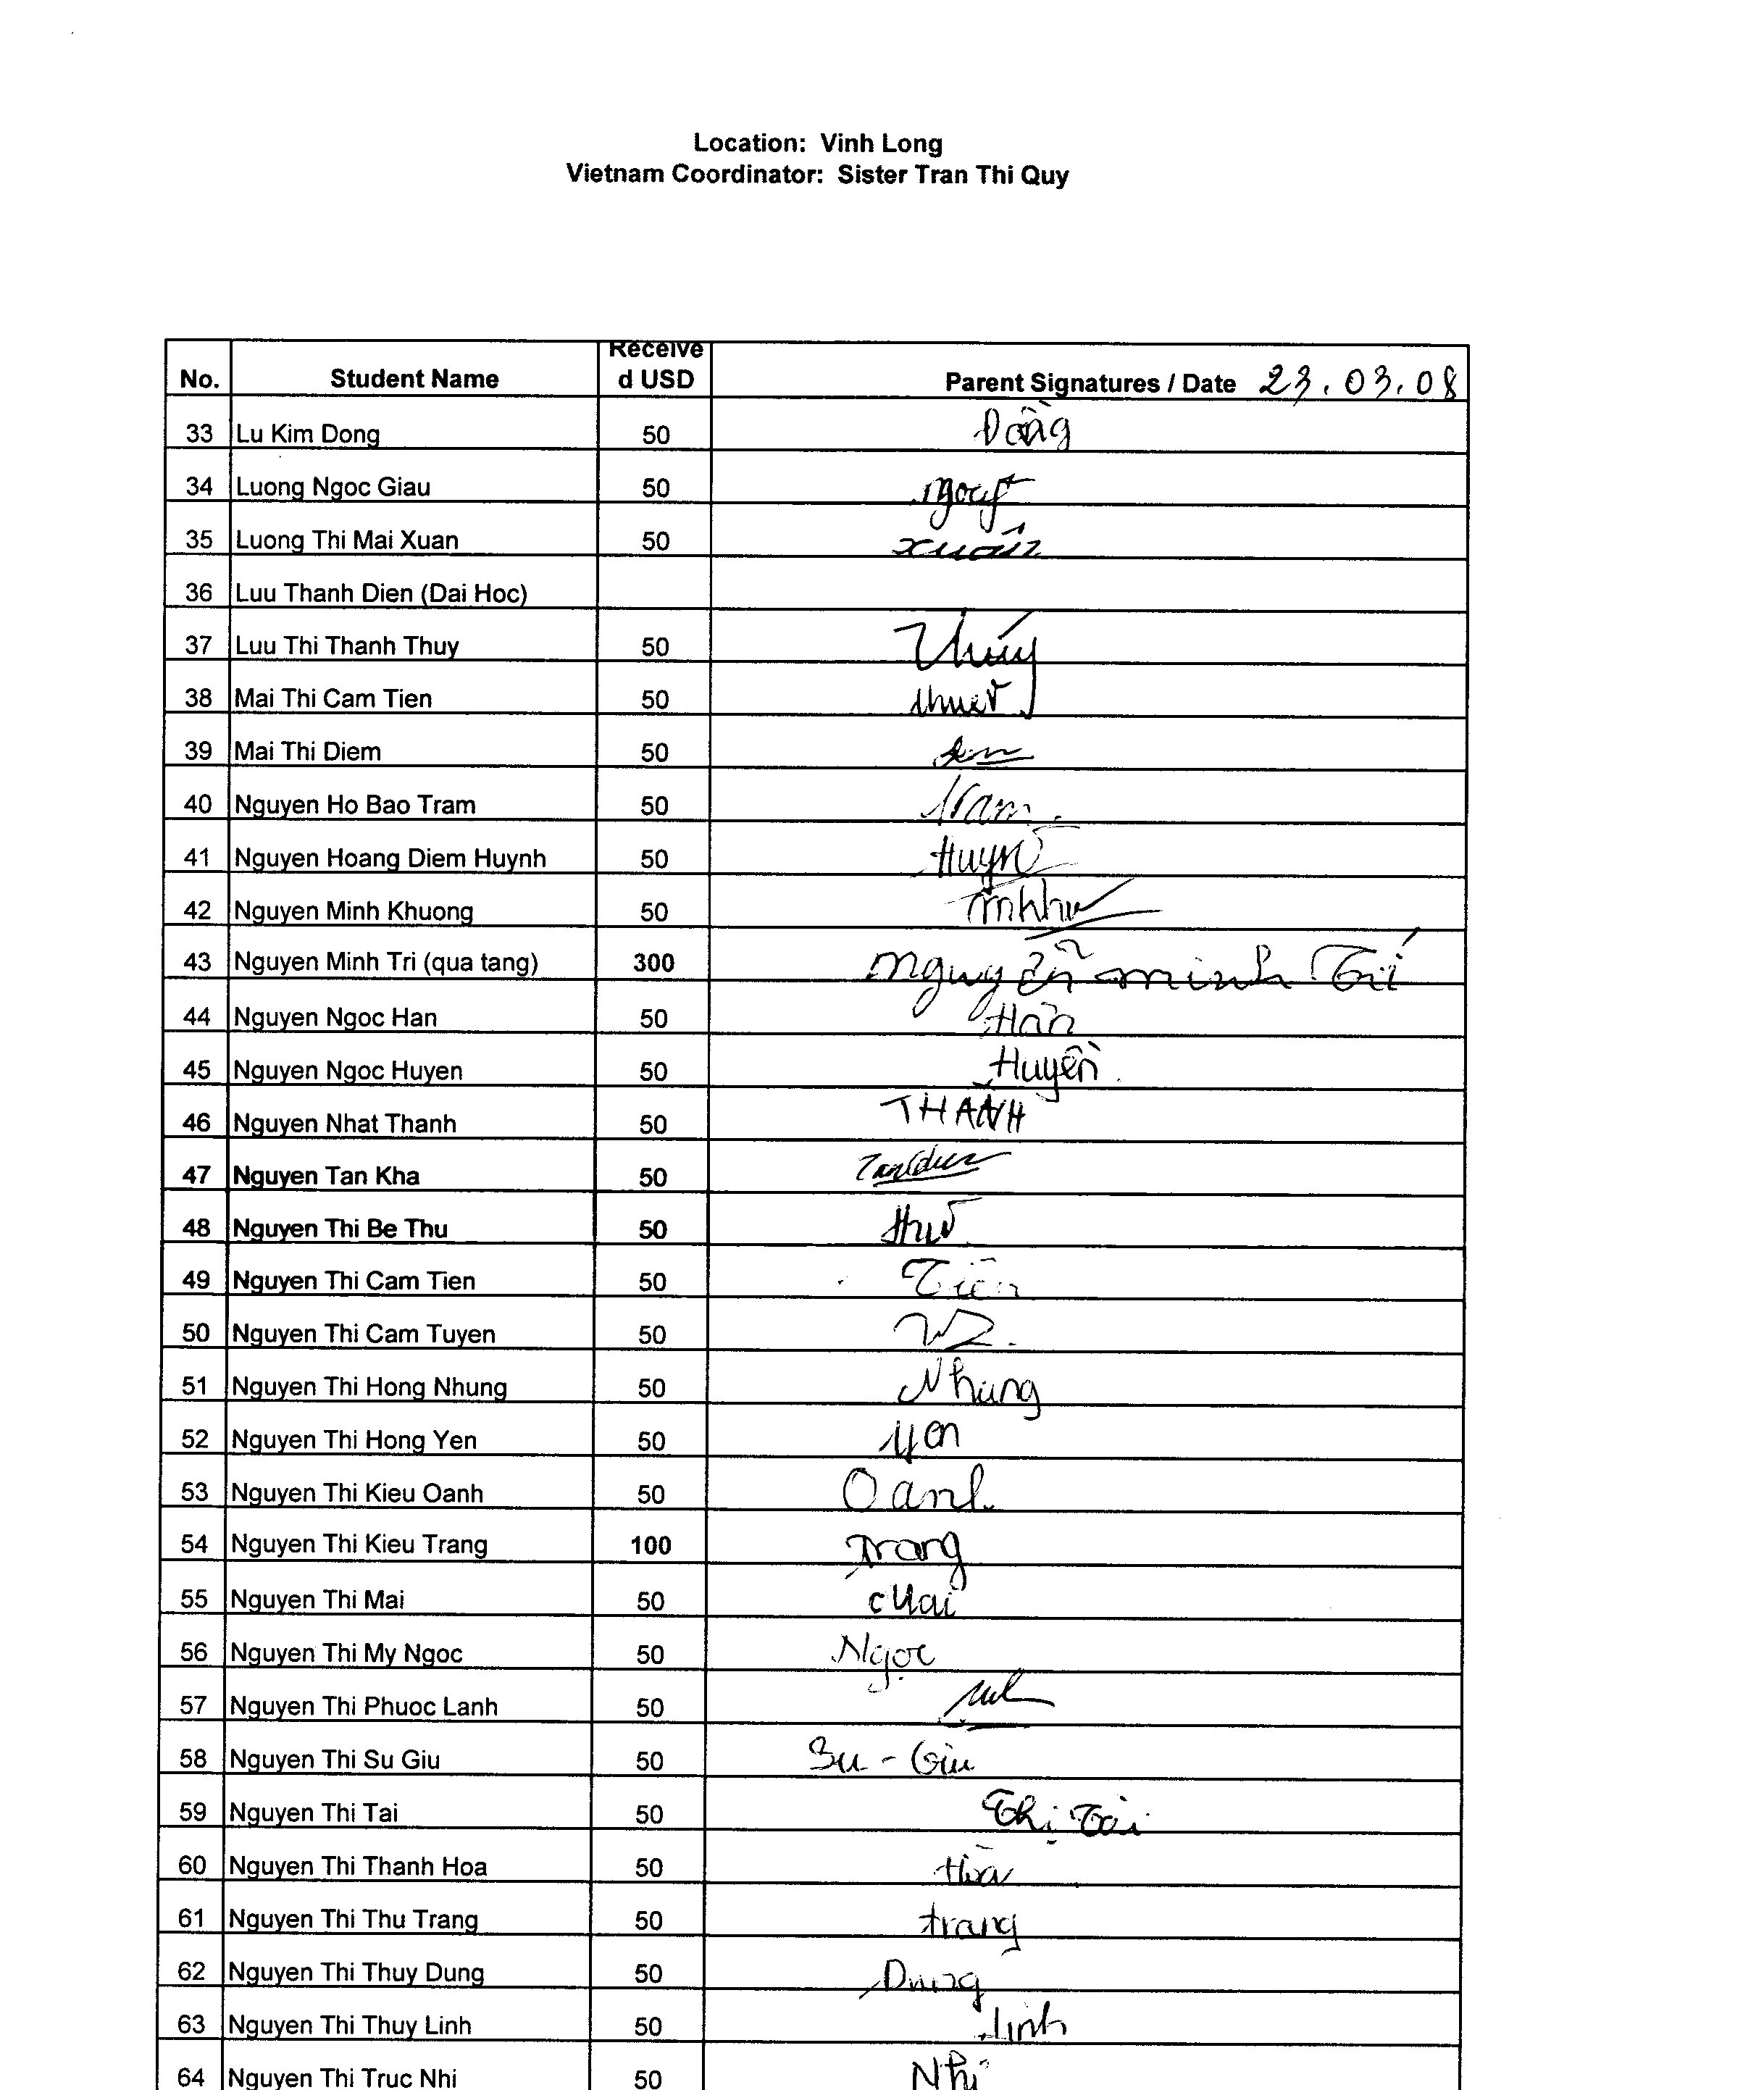 Location: Vinh Long
Vietnam Coordinator: Sister Tran Thi Quy
No. Student Name Receive d USD Parent Signatures / Date 23.03.08
33 Lu Kim Dong 50 Đồng
34 Luong Ngoc Giau 50
35 Luong Thi Mai Xuan 50 Xuân
36 Luu Thanh Dien (Dai Hoc)
37 Luu Thi Thanh Thuy 50 Thúy
38 Mai Thi Cam Tien 50
39 Mai Thi Diem 50
40 Nguyen Ho Bao Tram 50
41 Nguyen Hoang Diem Huynh 50 Huynh
42 Nguyen Minh Khuong 50
43 Nguyen Minh Tri (qua tang) 300 Nguyễn minh Trí
44 Nguyen Ngoc Han 50 Hân
45 Nguyen Ngoc Huyen 50 Huyền
46 Nguyen Nhat Thanh 50 THANH
47 Nguyen Tan Kha 50
48 Nguyen Thi Be Thu 50
49 Nguyen Thi Cam Tien 50 Tiên
50 Nguyen Thi Cam Tuyen 50
51 Nguyen Thi Hong Nhung 50 Nhung
52 Nguyen Thi Hong Yen 50 yen
53 Nguyen Thi Kieu Oanh 50 Oanh
54 Nguyen Thi Kieu Trang 100 Trang
55 Nguyen Thi Mai 50 Mai
56 Nguyen Thi My Ngoc 50 Ngọc
57 Nguyen Thi Phuoc Lanh 50
58 Nguyen Thi Su Giu 50 Su - Giu
59 Nguyen Thi Tai 50 Thị Tài
60 Nguyen Thi Thanh Hoa 50 Hòa
61 Nguyen Thi Thu Trang 50 trang
62 Nguyen Thi Thuy Dung 50 Dung
63 Nguyen Thi Thuy Linh 50 linh
64 Nguyen Thi Truc Nhi 50 Nhi